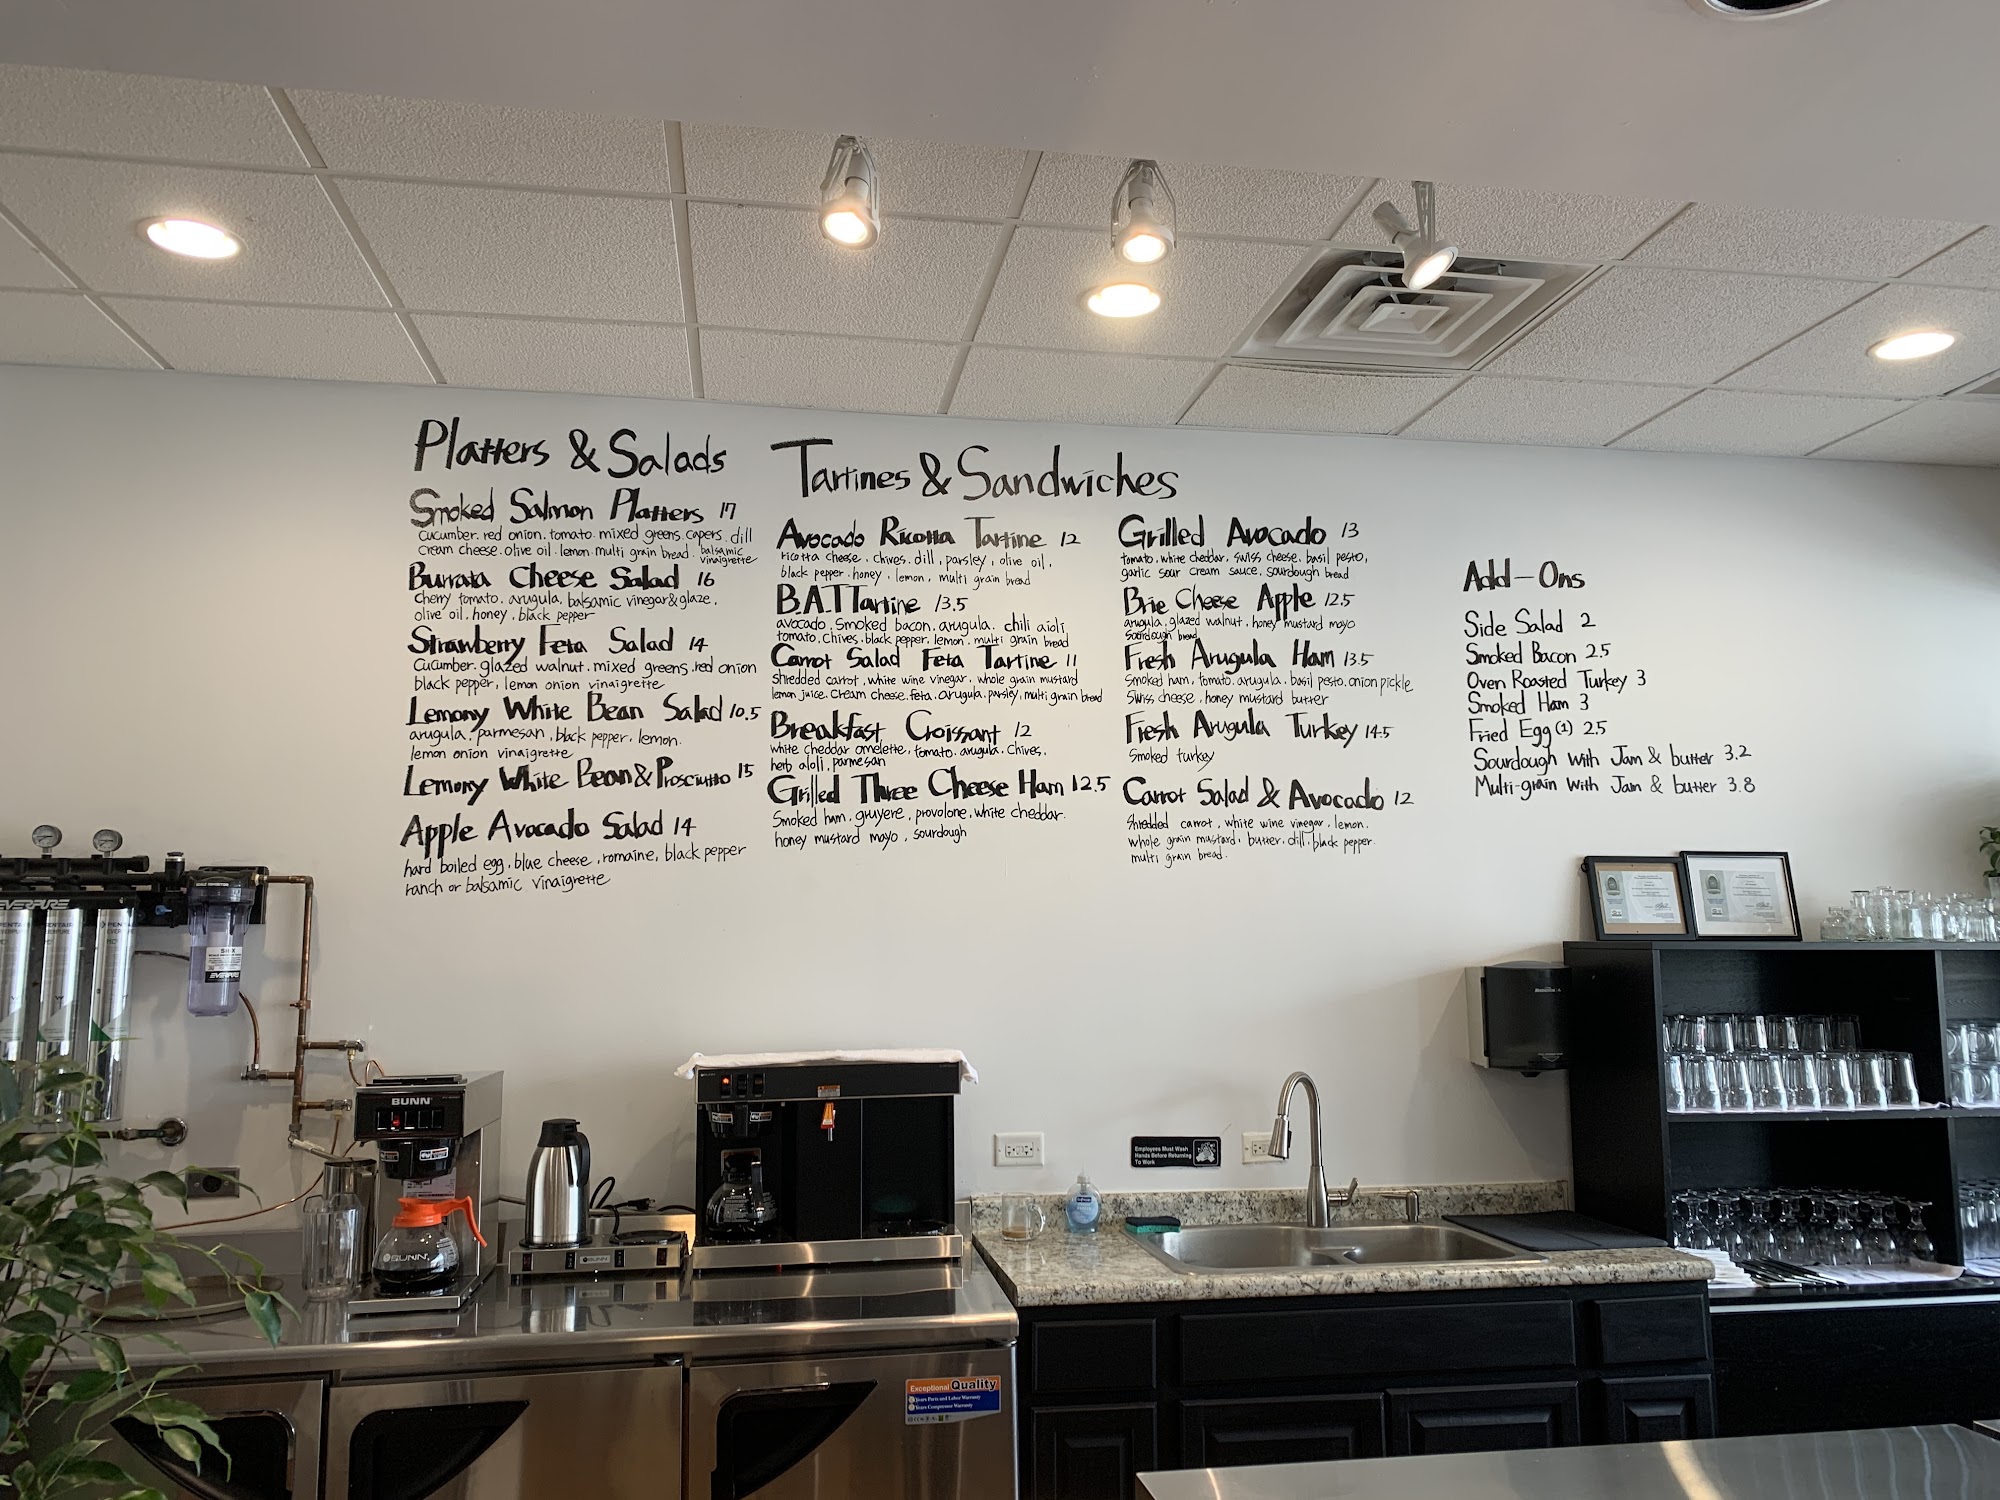 Platters & Salads
Smoked Salmon Platters 17
cucumber. red onion. tomato. mixed greens. capers. dill
cream cheese. olive oil. lemon. multi grain bread. balsamic
vinaigrette
Burrata Cheese Salad 16
cherry tomato. arugula. balsamic vinegar&glaze.
olive oil. honey. black pepper
Strawberry Feta Salad 14
cucumber. glazed walnut. mixed greens. red onion
black pepper, lemon onion vinaigrette
Lemony White Bean Salad 10.5
arugula. parmesan. black pepper. lemon.
lemon onion vinaigrette
Lemony White Bean & Prosciutto 15
Apple Avocado Salad 14
hard boiled egg. blue cheese, romaine, black pepper
ranch or balsamic vinaigrette
Tartines & Sandwiches
Avocado Ricotta Tartine 12
ricotta cheese, chives. dill, parsley, olive oil,
black pepper. honey, lemon, multi grain bread
B.A.T Tartine 13.5
avocado. smoked bacon. arugula. chili aioli
tomato. chives. black pepper, lemon. multi grain bread
Carrot Salad Feta Tartine 11
shredded carrot, white wine vinegar, whole grain mustard
lemon juice. cream cheese. feta. arugula. parsley, multi grain bread
Breakfast Croissant 12
white cheddar omelette, tomato. arugula. chives.
herb aioli, parmesan
Grilled Three Cheese Ham 12.5
Smoked ham. gruyere, provolone, white cheddar.
honey mustard mayo, sourdough
Grilled Avocado 13
tomato. white cheddar, swiss cheese. basil pesto,
garlic sour cream sauce, sourdough bread
Brie Cheese Apple 12.5
arugula. glazed walnut, honey mustard mayo
sourdough bread
Fresh Arugula Ham 13.5
Smoked ham, tomato. arugula. basil pesto. onion pickle
Swiss cheese, honey mustard butter
Fresh Arugula Turkey 14.5
Smoked turkey
Carrot Salad & Avocado 12
shredded carrot, white wine vinegar, lemon.
whole grain mustard, butter. dill. black pepper.
multi grain bread.
Add-Ons
Side Salad 2
Smoked Bacon 2.5
Oven Roasted Turkey 3
Smoked Ham 3
Fried Egg (1) 2.5
Sourdough with Jam & butter 3.2
Multi-grain with Jam & butter 3.8
EVERPURE
PENTAIR
EVERPURE
BUNN
BUNN
Employees Must Wash
Hands Before Returning
To Work
Exceptional Quality
Years Parts and Labor Warranty
Years Compressor Warranty